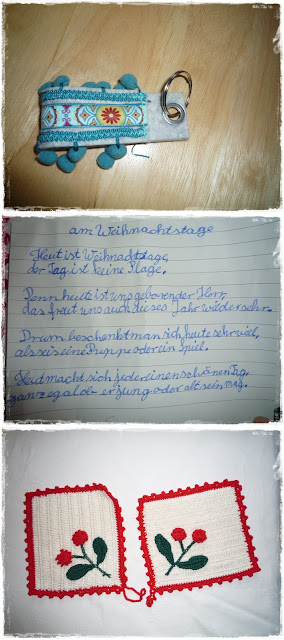 am Weihnachtstage
Heut ist Weihnachtstage,
der Tag ist keine Plage.
Denn heute ist uns geboren der Herr,
das freut uns auch dieses Jahr wieder sehr.
Drum beschenkt man sich heute sehr viel,
als sei's eine Puppe oder ein Spiel.
Heut macht sich jeder einen schönen Tag,
ganz egal ob er jung oder alt sein mag.